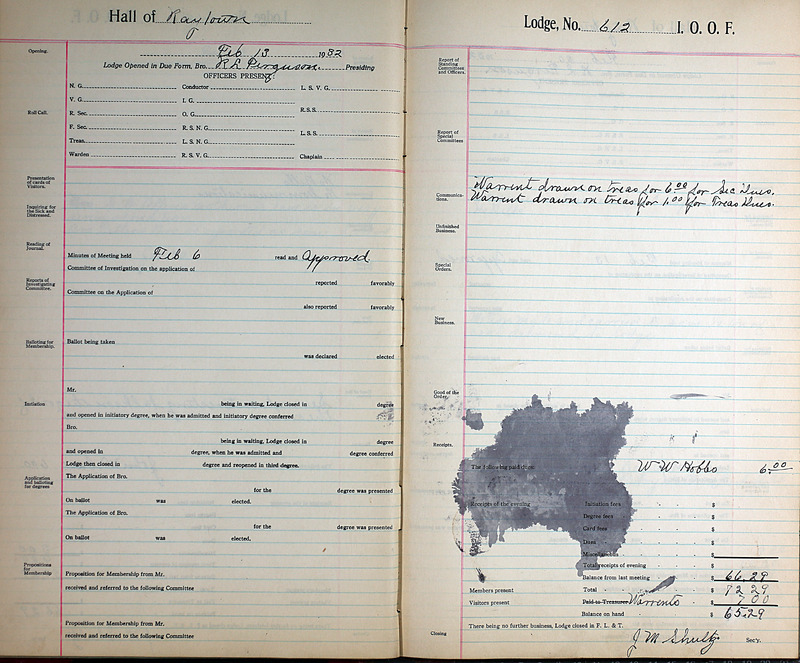 Hall of Raytown
Opening.
Feb 13 1932
Lodge Opened in Due Form, Bro. R L Ferguson. Presiding
OFFICERS PRESENT:
N. G. Conductor L. S. V. G.
V. G. I. G.
Roll Call.
R. Sec. O. G. R.S.S.
F. Sec. R. S. N. G. L.S.S.
Treas. L. S. N. G.
Warden R. S. V. G. Chaplain
Presentation of cards of Visitors.
Inquiring for the Sick and Distressed.
Reading of Journal.
Minutes of Meeting held Feb 6 read and Approved
Committee of Investigation on the application of
Reports of Investigating Committee.
reported favorably
Committee on the Application of
also reported favorably
Balloting for Membership.
Ballot being taken
was declared elected
Mr.
Initiation
being in waiting, Lodge closed in degree
and opened in initiatory degree, when he was admitted and initiatory degree conferred
Bro.
being in waiting, Lodge closed in degree
and opened in degree, when he was admitted and degree conferred
Lodge then closed in degree and reopened in third degree.
Application and balloting for degrees
The Application of Bro.
for the degree was presented
On ballot was elected.
The Application of Bro.
for the degree was presented
On ballot was elected.
Propositions for Membership
Proposition for Membership from Mr.
received and referred to the following Committee
Proposition for Membership from Mr.
received and referred to the following Committee
Lodge, No. 612 I. O. O. F.
Report of Standing Committees and Officers.
Report of Special Committees
Communications.
Warrent drawn on treas for 6.00 for Sec Dues.
Warrent drawn on treas for 1.00 for Treas Dues.
Unfinished Business.
Special Orders.
New Business.
Good of the Order.
Receipts.
The following paid dues W W Hobbs 6.00
Receipts of the evening Initiation fees $
Degree fees $
Card fees $
Dues $
Miscellaneous $
Total receipts of evening
Balance from last meeting $ 66.29
Members present Total $ 72 29
Visitors present Paid to Treasurer Warrents 7 00
Balance on hand $ 65.29
There being no further business, Lodge closed in F. L. & T.
Closing
J M Shultz Sec'y.